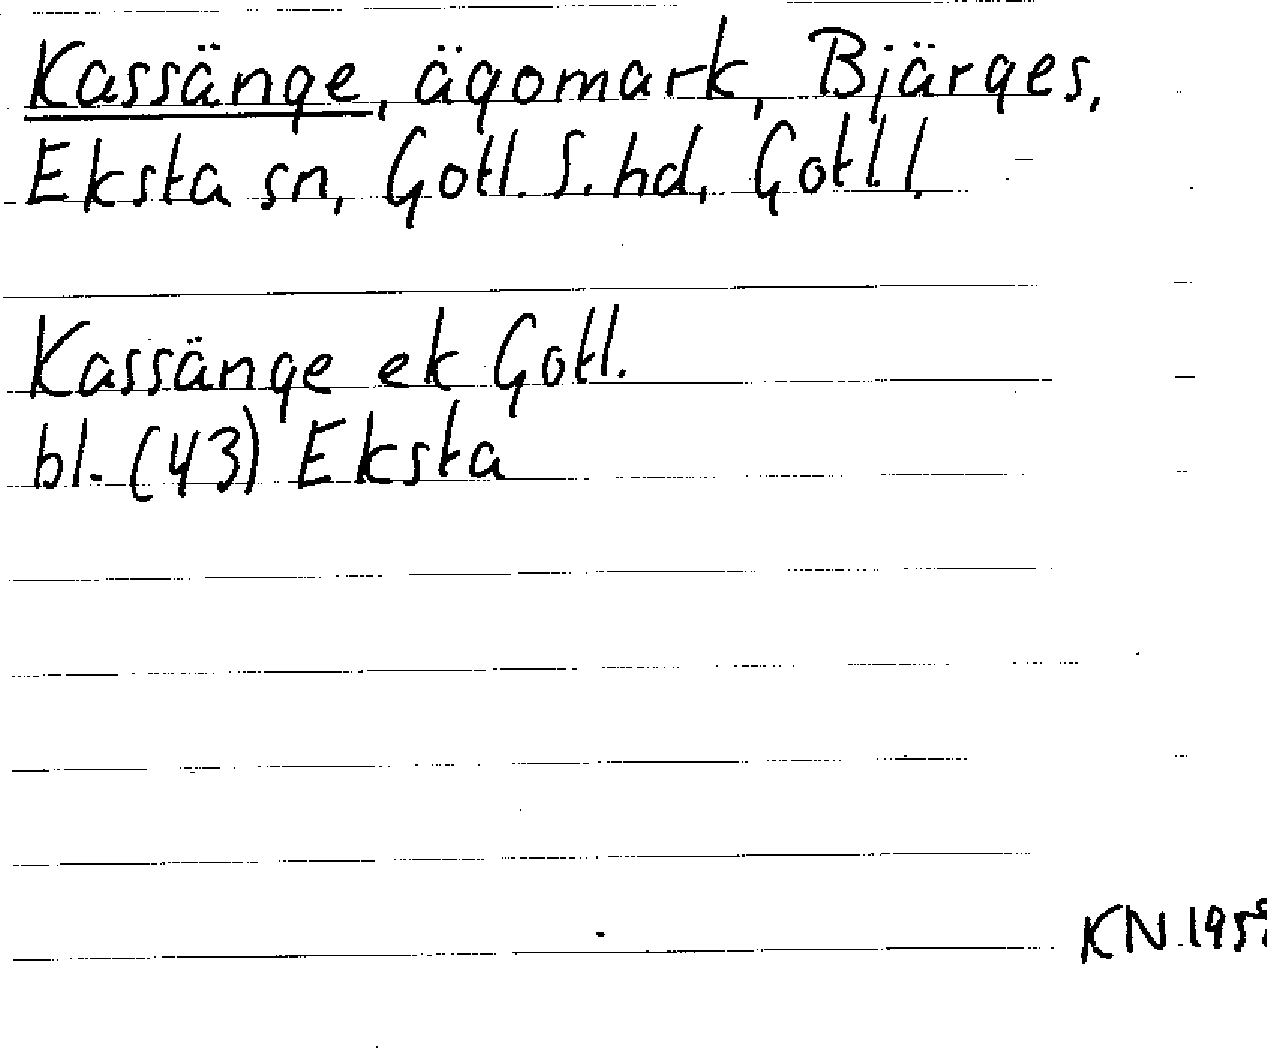 Kassänge, ägomark, Bjärges,
Eksta sn, Gotl. S. hd, Gotl. l.
Kassänge ek Gotl.
bl. (43) Eksta
KN